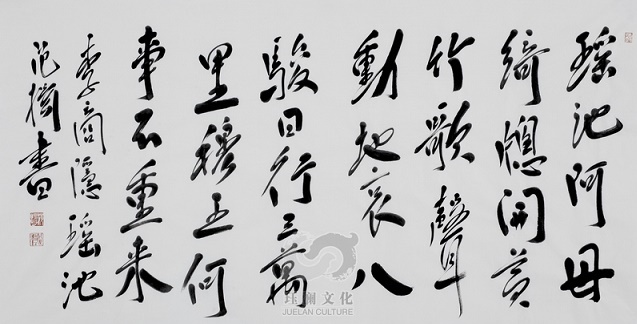 瑶池阿母
綺牕開黄
竹歌聲
動地哀八
駿日行三萬
里穆王何
事不重来
李商隱瑶池
范書
文化
JUELAN CULTURE